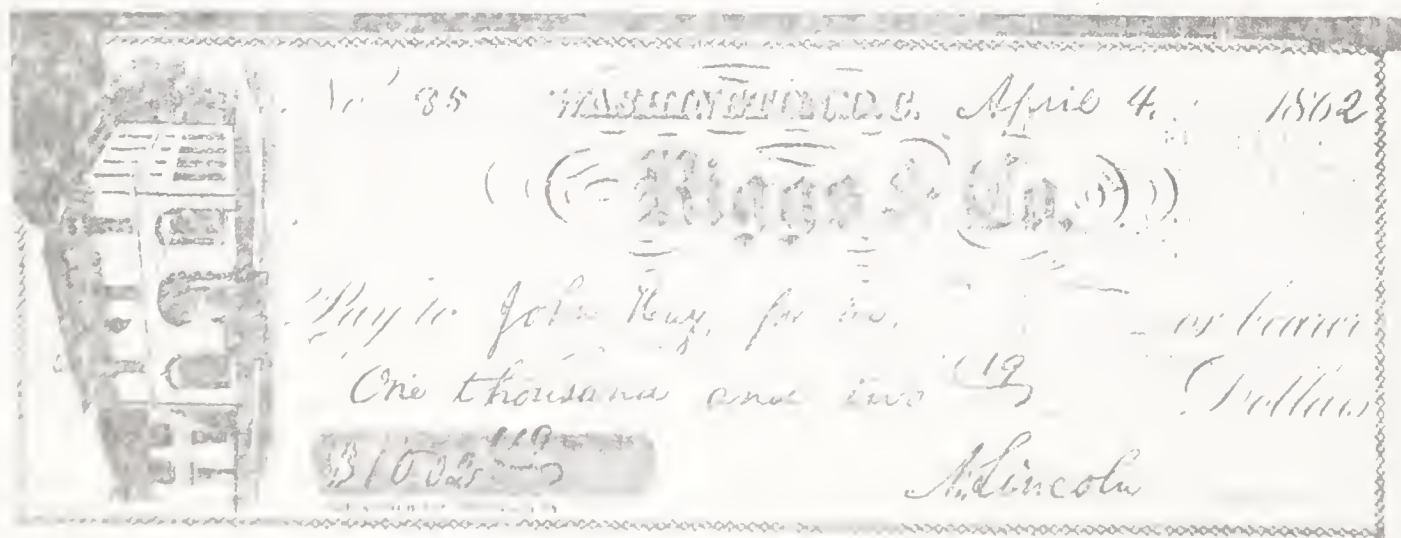 No 85 WASHINGTON, D.C. April 4. 1862
Riggs & Co.
Pay to John Hay, for me. or bearer
One thousand and two 19 Dollars
$1002 19
A. Lincoln